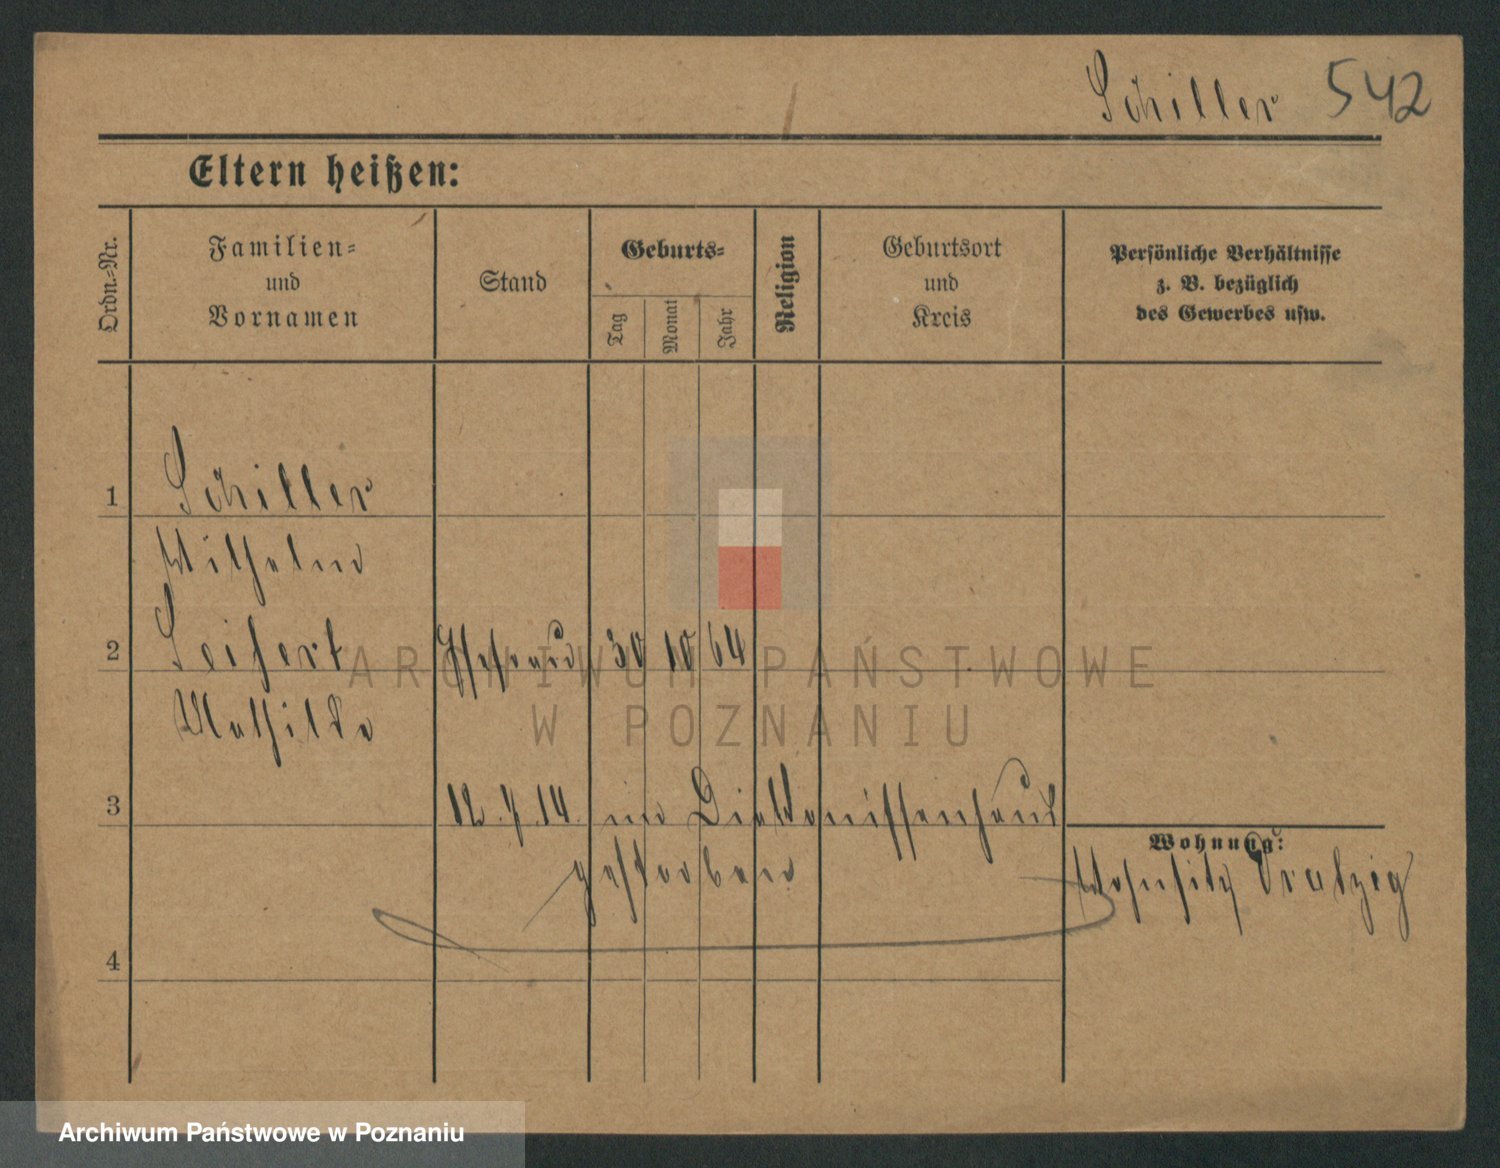 Schiller 542
Eltern heißen:
Ordn.-Nr.
Familien-
und
Vornamen
Stand
Geburts-
Tag
Monat
Jahr
Religion
Geburtsort
und
Kreis
Persönliche Verhältnisse
z. B. bezüglich
des Gewerbes usw.
1 Schiller
Wilhelm
2 Seifert Ehefrau 30 10 64
Mathilde
ARCHIWUM PAŃSTWOWE
W POZNANIU
3 12. 7. 14. im Diakonissenhaus
gestorben
Wohnung:
Wohnsitz Dratzig
4
Archiwum Państwowe w Poznaniu